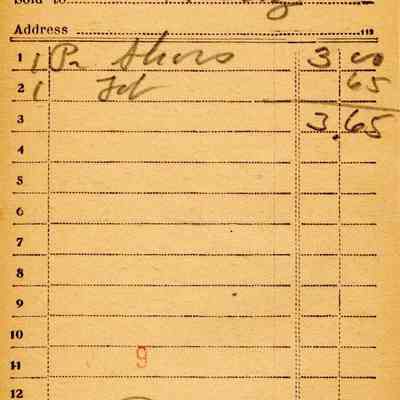 Sold to
Address
1 1 Pr Shoes 3 00
2 1 65
3 3.65
4
5
6
7
8
9
10
9
11
12